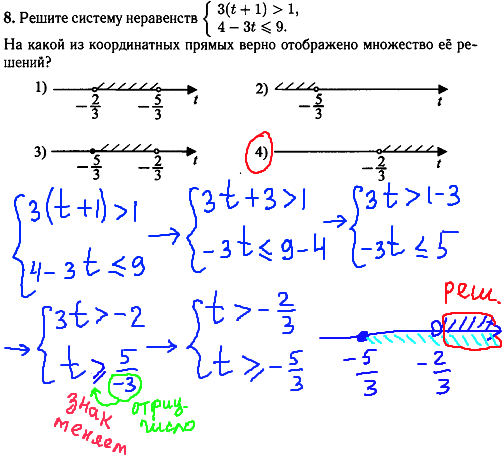 8. Решите систему неравенств { 3(t + 1) > 1,
4 − 3t ⩽ 9.
На какой из координатных прямых верно отображено множество её ре-
шений?
1) −2/3 −5/3 t
2) −5/3 t
3) −5/3 −2/3 t
4) −2/3 t
{ 3(t+1) > 1
4 − 3t ≤ 9
→ { 3t + 3 > 1
−3t ≤ 9 − 4
→ { 3t > 1 − 3
−3t ≤ 5
→ { 3t > −2
t ⩾ 5/−3
знак
меняем
отриц.
число
→ { t > −2/3
t ⩾ −5/3
Реш.
−5/3 −2/3